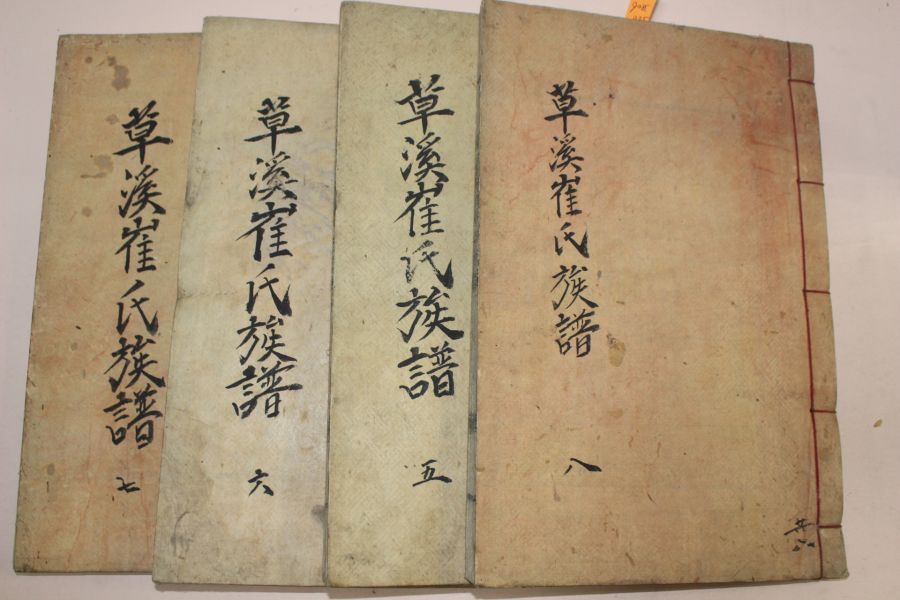 草溪崔氏族譜 八
草溪崔氏族譜 五
草溪崔氏族譜 六
草溪崔氏族譜 七